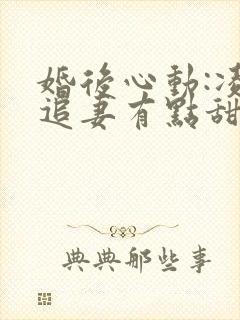 婚後心動:凌
追妻有點甜
典典那些事